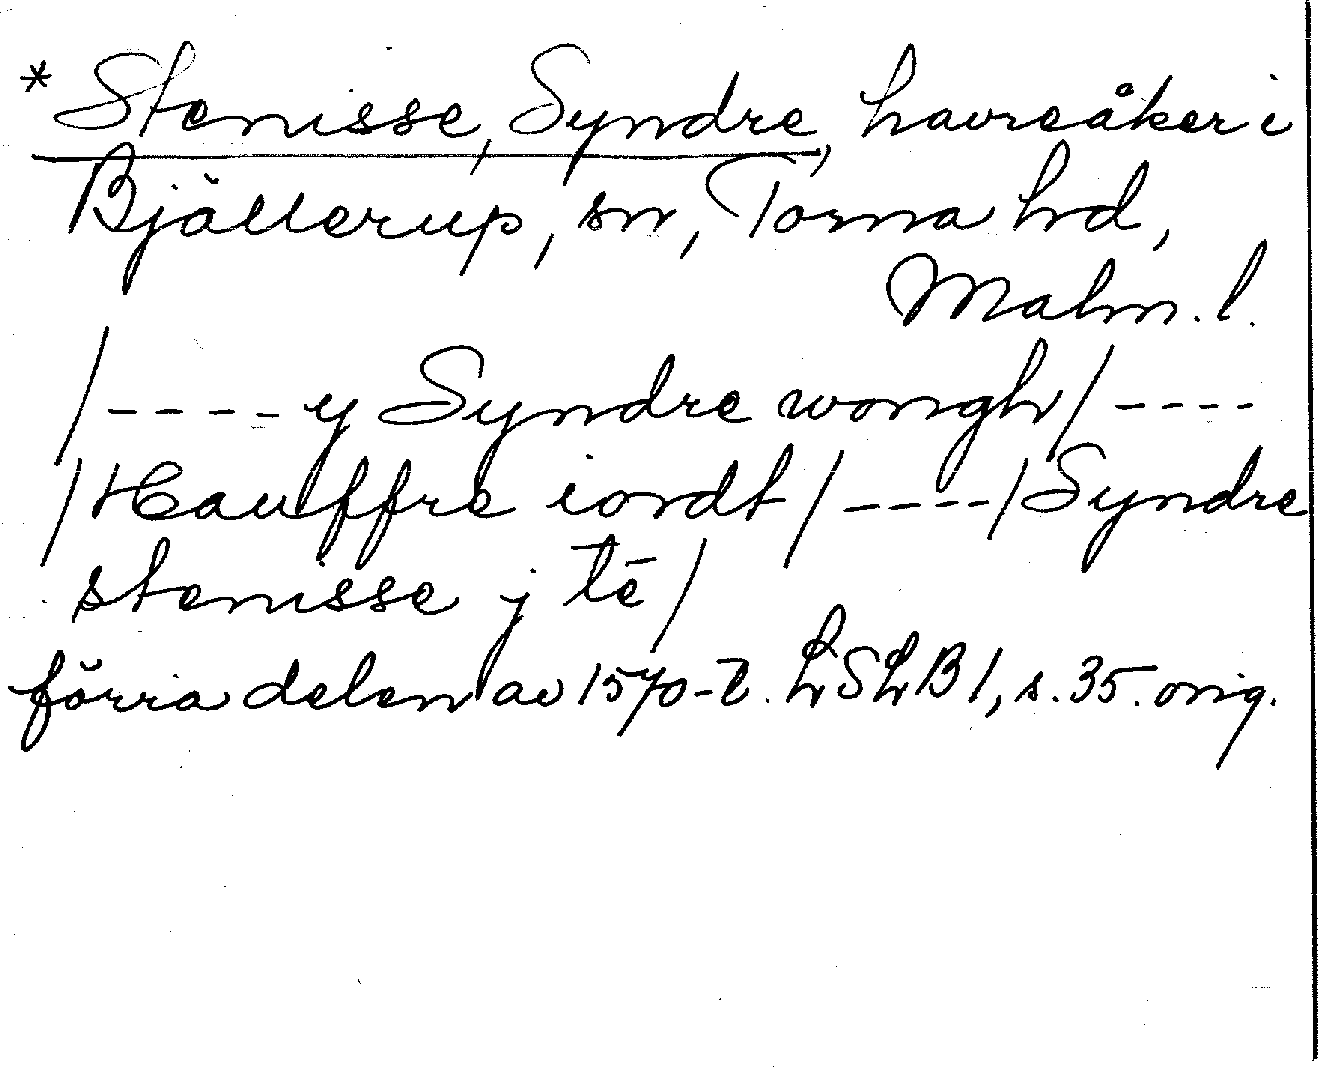 *Stenisse, Syndre, havreåker i
Bjällerup, sn, Torna hd,
Malm. l.
/----y Syndre wongh/----
/Hauffre iordt/----/Syndre
stenisse j tē/
förra delen av 1570-t. LSLB 1, s. 35. orig.